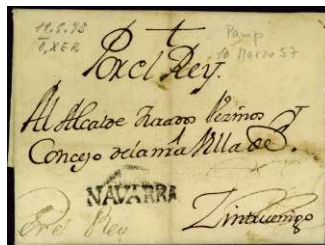 Pamp
Por el Rey.
Al Alcalde Jurados Vezinos y
Concejo de la mia Villa de
NAVARRA
Zintruenigo
Por el Rey